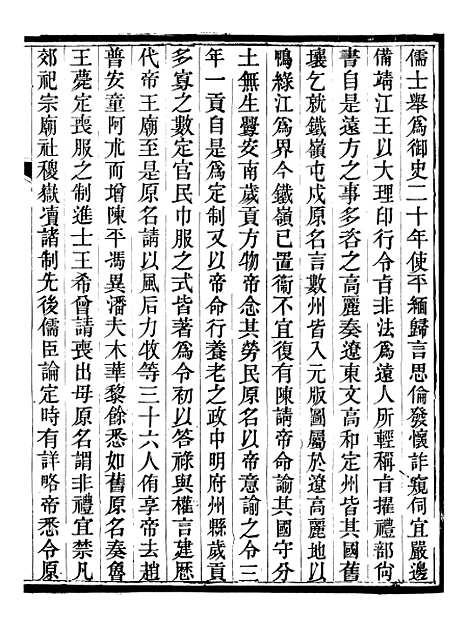 儒士舉爲御史二十年使平緬歸言思倫發懷詐窺伺宜嚴邊
備靖江王以大理印行令旨非法爲遠人所輕稱旨擢禮部尙
書自是遠方之事多咨之高麗奏遼東文高和定州皆其國舊
壤乞就鐵嶺屯戍原名言數州皆入元版圖屬於遼高麗地以
鴨綠江爲界今鐵嶺已置衞不宜復有陳請帝命諭其國守分
土無生釁安南歲貢方物帝念其勞民原名以帝意諭之令三
年一貢自是爲定制又以帝命行養老之政申明府州縣歲貢
多寡之數定官民巾服之式皆著爲令初以答祿與權言建歷
代帝王廟至是原名請以風后力牧等三十六人侑享帝去趙
普安童阿朮而增陳平馮異潘美木華黎餘悉如舊原名奏魯
王薨定喪服之制進士王希曾請喪出母原名謂非禮宜禁凡
郊祀宗廟社稷嶽瀆諸制先後儒臣論定時有詳略帝悉令原